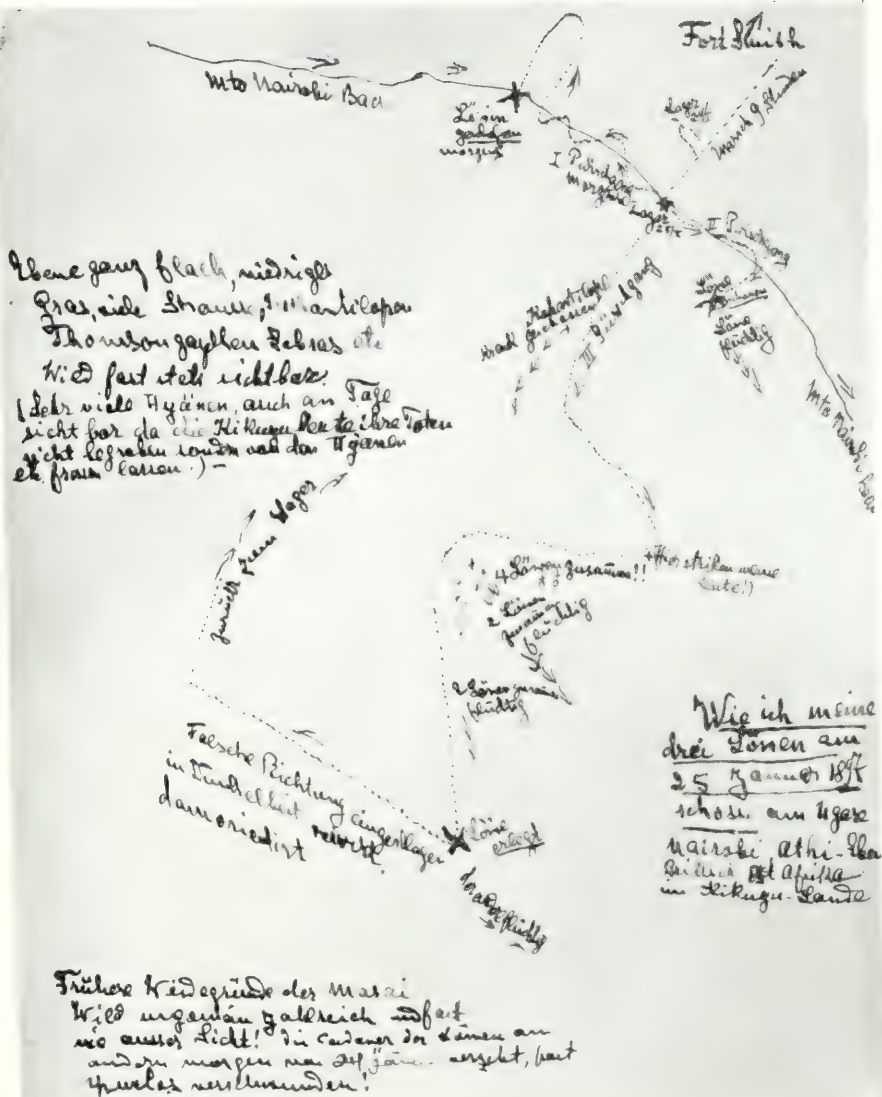 Fort Smith
Mto Nairobi Bad
Lager
24/1
Marsch 9 Stunden
Löwin
morgens
I Pürschgang
Morgens Lager
25/1
II Pürschgang
Löwe
Löwe
flüchtig
Kuhantilope
geschossen
III Pürschgang
Mto Nairobi
Ebene ganz flach, niedriges
Gras, viele Strausse, antilopen
Thomsongazellen Zebras etc
Wild fast stets sichtbar.
(Sehr viele Hyänen, auch am Tage
sichtbar da die Kikuyu Leute ihre Toten
nicht begraben sondern von den Hyänen
etc. fressen lassen.) –
zurück zum Lager
4 Löwen zusammen!!
+ Hier striken meine
Leute!)
2 Löwen
zusammen
flüchtig
2 Löwen zusam
flüchtig
Falsche Richtung eingeschlagen
in Dunkelheit
dann orientirt
Löwe
erlegt
der andre flüchtig
Wie ich meine
drei Löwen am
25 Januar 1897
schoss am
Nairobi Athi-Eben
Ost Afrika
im Kikuyu-Lande
Frühere Weidegründe der Masai
Wild ungemein zahlreich und fast
nie ausser Sicht! die Cadaver der Löwen am
andern morgen von verzehrt, fast
spurlos verschwunden!